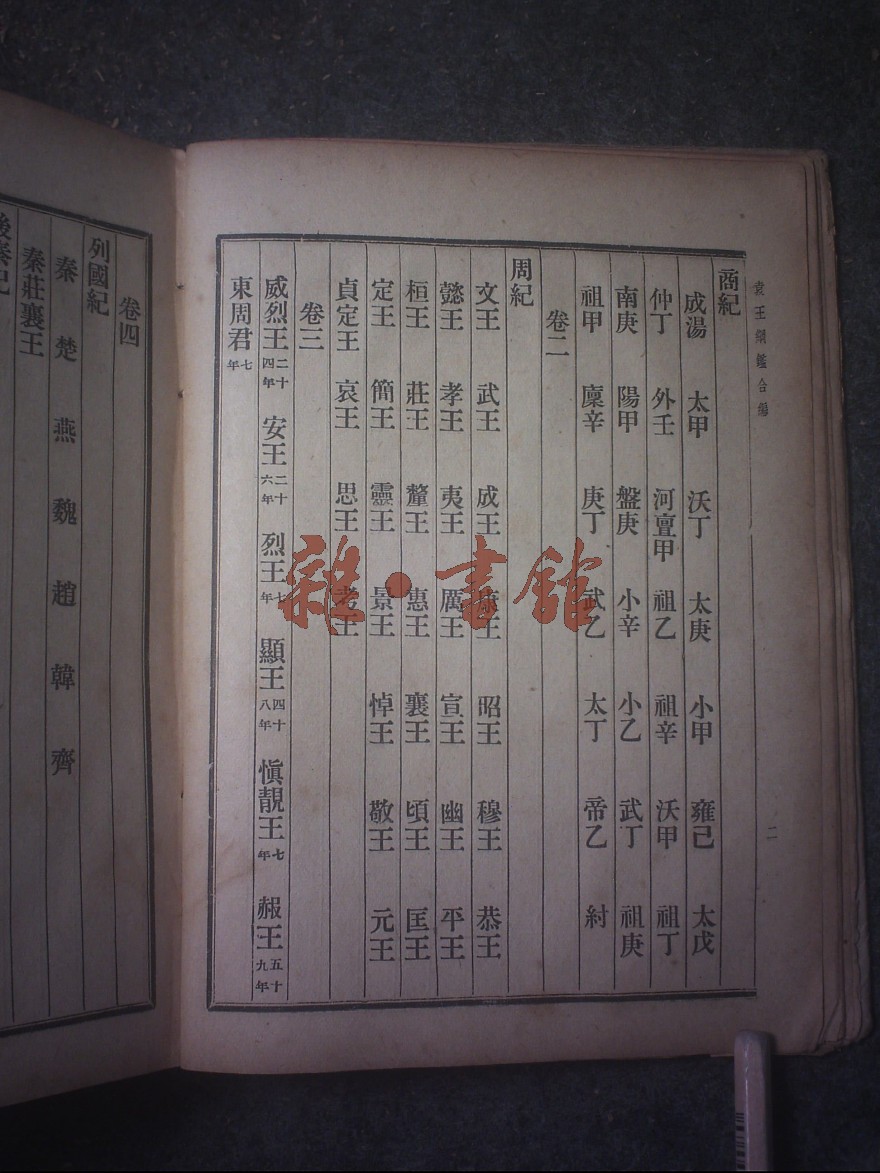 袁王綱鑑合編
二
商紀
成湯 太甲 沃丁 太庚 小甲 雍己 太戊
仲丁 外壬 河亶甲 祖乙 祖辛 沃甲 祖丁
南庚 陽甲 盤庚 小辛 小乙 武丁 祖庚
祖甲 廩辛 庚丁 武乙 太丁 帝乙 紂
卷二
周紀
文王 武王 成王 康王 昭王 穆王 恭王
懿王 孝王 夷王 厲王 宣王 幽王 平王
桓王 莊王 釐王 惠王 襄王 頃王 匡王
定王 簡王 靈王 景王 悼王 敬王 元王
貞定王 哀王 思王 考王
卷三
威烈王二十四年 安王二十六年 烈王七年 顯王四十八年 愼靚王七年 赧王五十九年
東周君七年
卷四
列國紀
秦 楚 燕 魏 趙 韓 齊
秦莊襄王
後秦紀
雜·書館